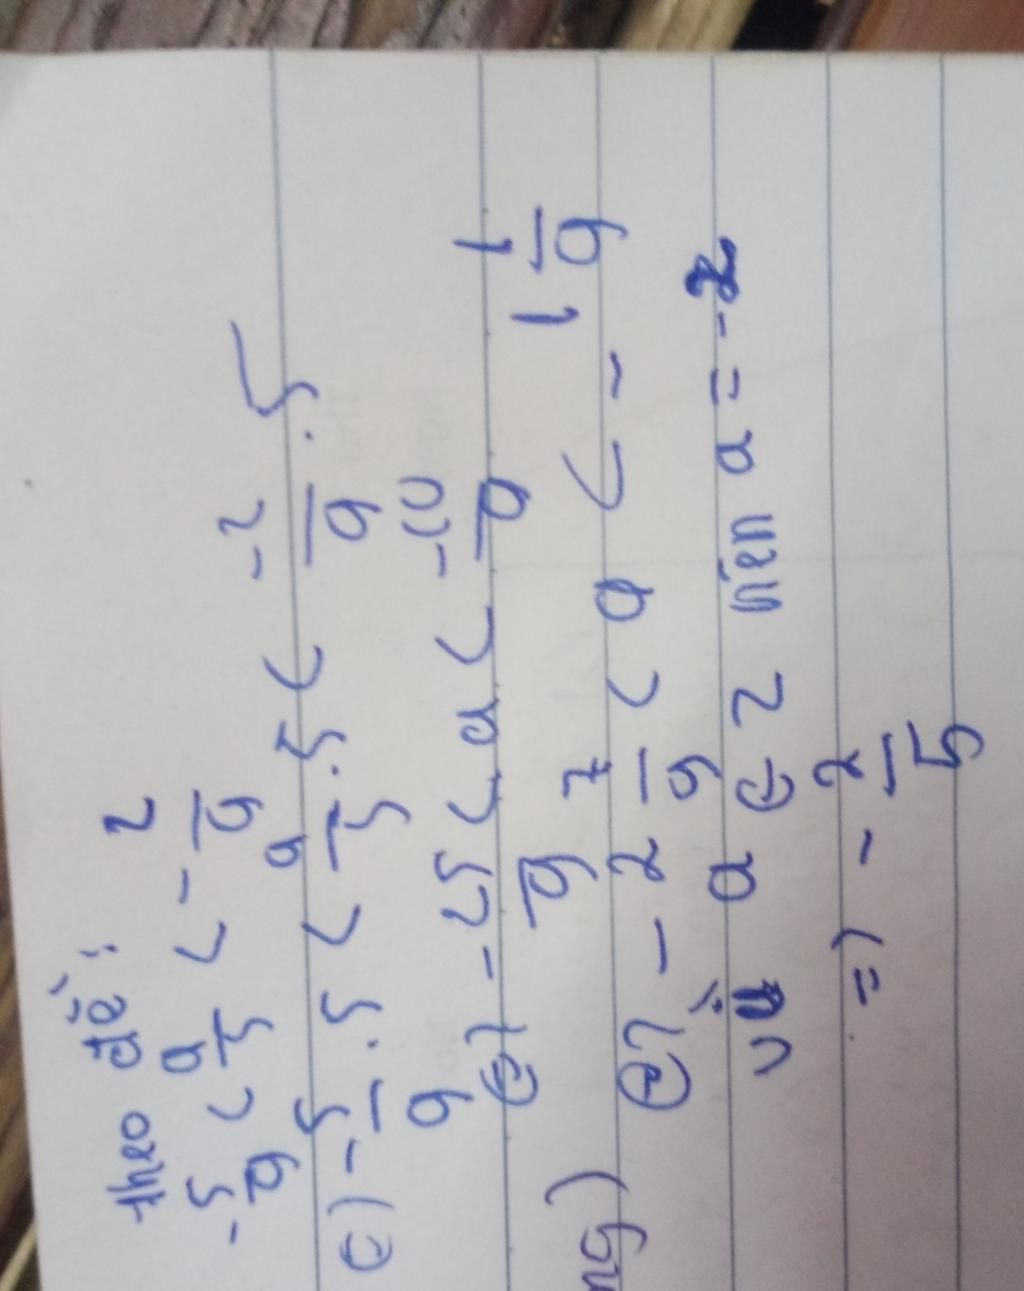 theo đề:
-5/9 < a/5 < -2/9
=) 5 . -5/9 < 5 . a/5 < 5 . -2/9
=) -25/9 < a < -10/9
=) -2 7/9 < a < -1 1/9
Vì a ∈ Z nên a = -2
=) -2/5